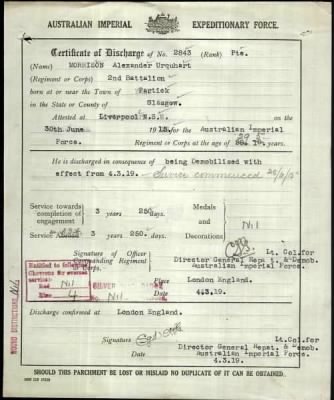 AUSTRALIAN IMPERIAL EXPEDITIONARY FORCE.
Certificate of Discharge of No. 2843 (Rank) Pte.
(Name) MORRISON Alexander Urquhart
(Regiment or Corps) 2nd Battalion
born at or near the Town of Partick
in the State or County of Glasgow.
Attested at Liverpool N.S.W. on the
30th June 1915. for the Australian Imperial
Force. Regiment or Corps at the age of years.
He is discharged in consequence of being Demobilised with
effect from 4.3.19. Service commenced
Service towards
completion of
engagement
3 years 250 days.
Medals
and
Decorations
Nil
Service 3 years 250 days.
Signature of Officer
Commanding Regiment
or Corps.
Lt. Col. for
Director General Repat. & Demob.
Australian Imperial Force.
Entitled to following
Chevrons for overseas
service:
Red Nil
Blue 4
WOUND DISTINCTIONS
SILVER
No. Nil
Place London England.
Date 4.3.19.
Discharge confirmed at London England.
Signature
Date
Lt.Col.for
Director General Repat. & Demob.
Australian Imperial Force.
4.3.19.
SHOULD THIS PARCHMENT BE LOST OR MISLAID NO DUPLICATE OF IT CAN BE OBTAINED.